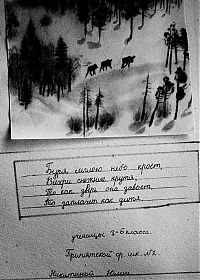 Буря мглою небо кроет,
Вихри снежные крутя;
То как зверь она завоет,
То заплачет как дитя.
ученицы 3-б класса.
Припятской ср. шк. №2.
Никитиной Юлии